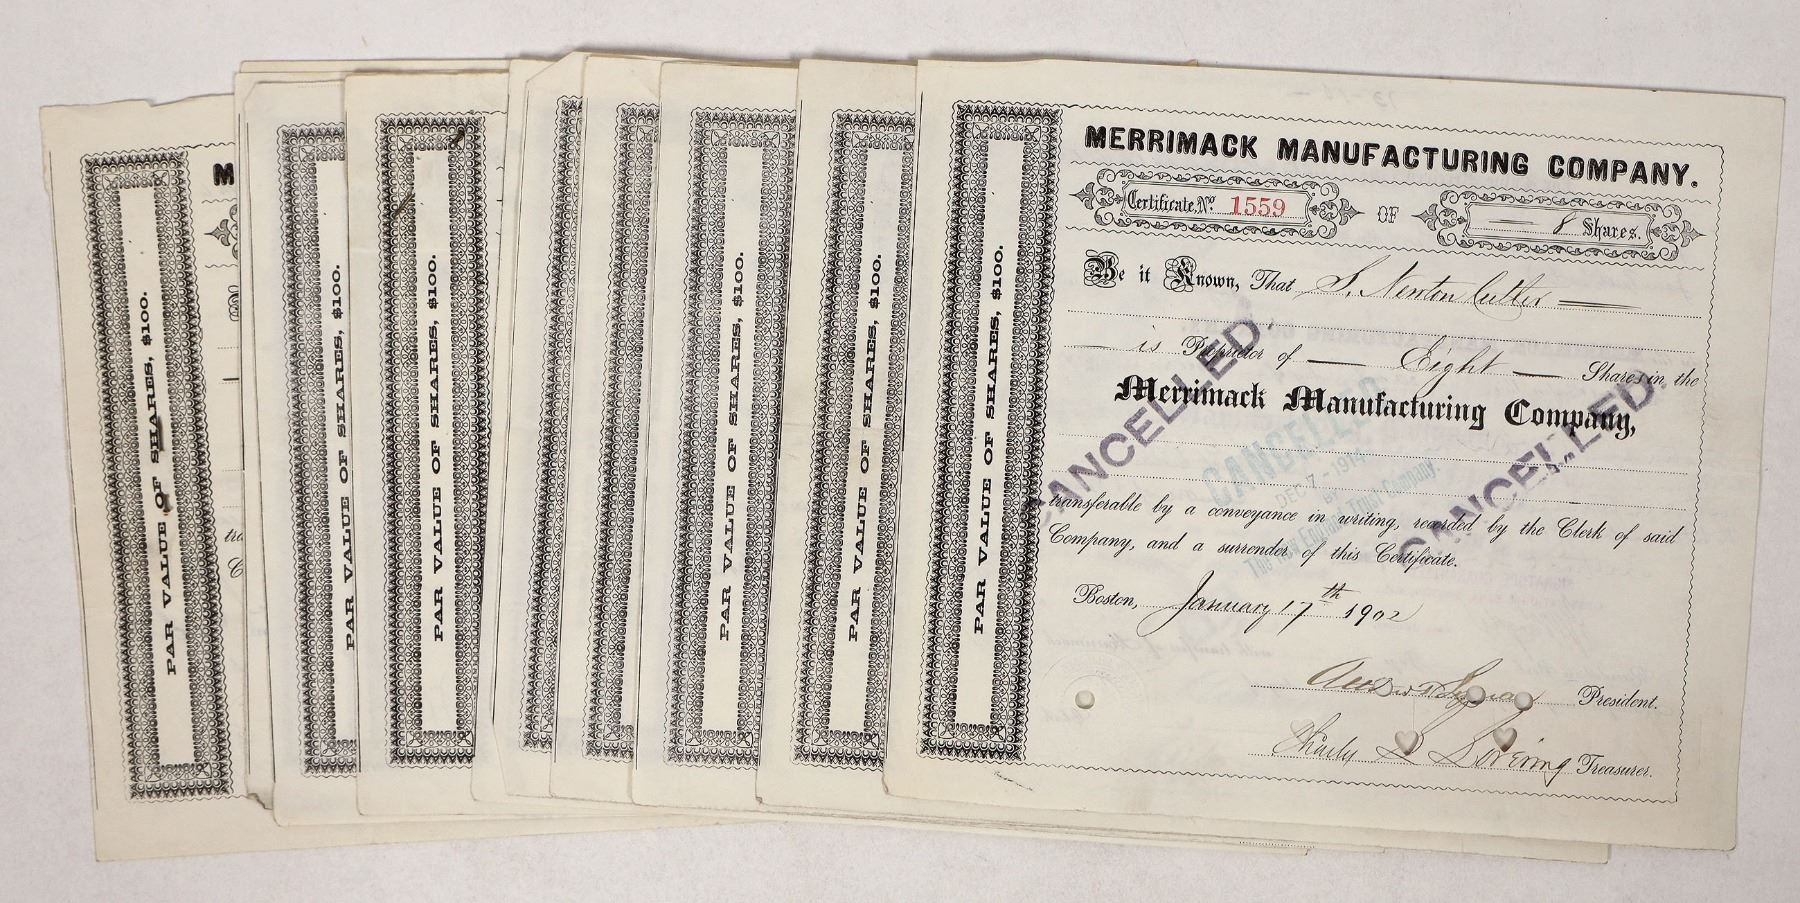 PAR VALUE OF SHARES, $100.
M
tra
C
PAR VALUE OF SHARES, $100.
PAR VALUE OF SHARES, $100.
PAR VALUE OF SHARES, $100.
PAR VALUE OF SHARES, $100.
PAR VALUE OF SHARES, $100.
MERRIMACK MANUFACTURING COMPANY.
Certificate, No. 1559 OF 8 Shares.
Be it Known, That S. Newton Cutler
is Proprietor of Eight Shares in the
Merrimack Manufacturing Company,
transferable by a conveyance in writing, recorded by the Clerk of said
Company, and a surrender of this Certificate.
Boston, January 17th 1902
President.
Treasurer.
CANCELLED.
CANCELLED
DEC 7 - 191
BY
The New England Trust Company
CANCELLED.